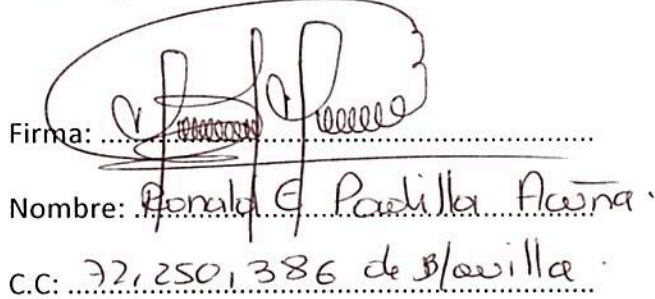 Firma:
Nombre: Ronald E Padilla Acuña.
C.C: 72,250,386 de B/quilla.